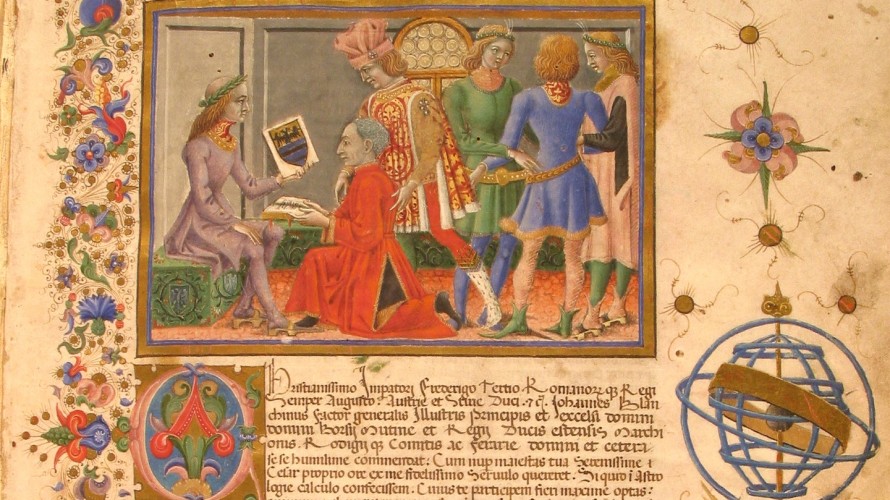 Christianissimo Impatori Frederigo Tertio. Romanorꝫ qꝫ Regi
Semper Augusto. Austrie et Stirie Duci. & c̄. Iohannes Blan
chinus factor generalis Illustris principis et excelsi domini
domini Borsij Mutine et Regij Ducis estensis March
onis. Rodigij qꝫ Comitis ac ferarie domini et cetera
se se humilime commendat: Cum nup maiestas tua Serenissime
Cesar proprio ore ex me fidelissimo Servulo quereret. Si quid Astro
logie calculo confecissem. Cuius te participem fieri maxime optas: